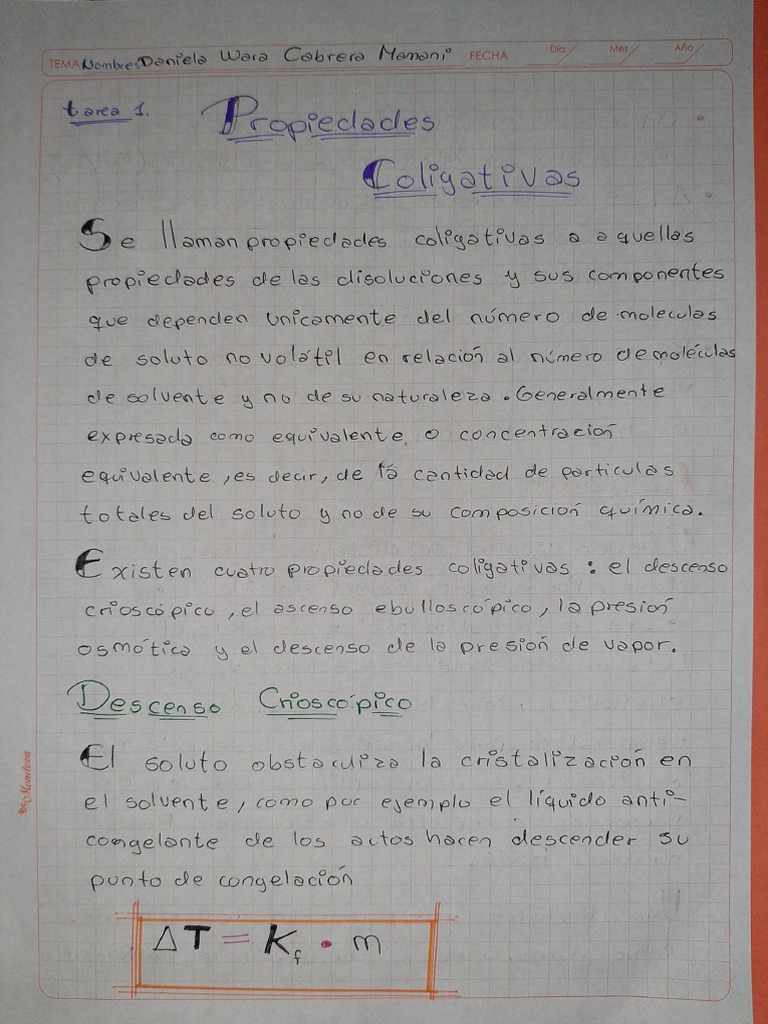 TEMA Nombres: Daniela Wara Cabrera Mamani FECHA Día Mes Año
tarea 1. Propiedades
Coligativas
Se llaman propiedades coligativas a aquellas
propiedades de las disoluciones y sus componentes
que dependen únicamente del número de moleculas
de soluto no volátil en relación al número de moléculas
de solvente y no de su naturaleza. Generalmente
expresada como equivalente o concentración
equivalente, es decir, de la cantidad de particulas
totales del soluto y no de su composición química.
Existen cuatro propiedades coligativas: el descenso
crioscópico, el ascenso ebulloscópico, la presión
osmótica y el descenso de la presión de vapor.
Descenso Crioscópico
El soluto obstaculiza la cristalización en
el solvente, como por ejemplo el líquido anti-
congelante de los autos hacen descender su
punto de congelación
ΔT = Kf • m
Mendoza